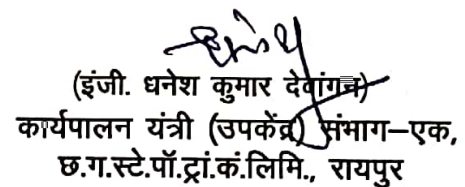 (इंजी. धनेश कुमार देवांगन)
कार्यपालन यंत्री (उपकेंद्र) संभाग–एक,
छ.ग.स्टे.पॉ.ट्रां.कं.लिमि., रायपुर